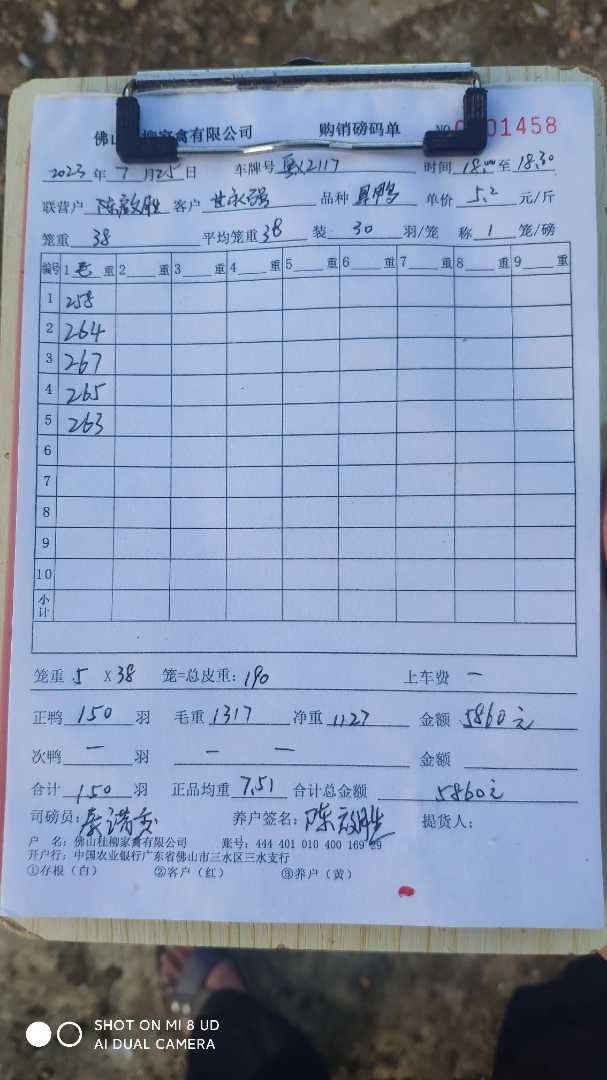 佛山 柳家禽有限公司 购销磅码单 NO 01458
2023年7月25日 车牌号 2117 时间18:00至18:30
联营户 陈 胜 客户 世永强 品种 鸭 单价5.2元/斤
笼重38 平均笼重38 装30羽/笼 称1笼/磅
编号 1毛重 2 重 3 重 4 重 5 重 6 重 7 重 8 重 9 重
1 258
2 264
3 267
4 265
5 263
6
7
8
9
10
小计
笼重5 X38 笼=总皮重:190 上车费 一
正鸭150羽 毛重1317 净重1127 金额5860元
次鸭 一 羽 一 一 金额
合计150羽 正品均重7.51 合计总金额 5860元
司磅员: 养户签名:陈 胜 提货人:
户 名:佛山桂柳家禽有限公司 账号:444 401 010 400 169 29
开户行:中国农业银行广东省佛山市三水区三水支行
①存根(白) ②客户(红) ③养户(黄)
SHOT ON MI 8 UD
AI DUAL CAMERA